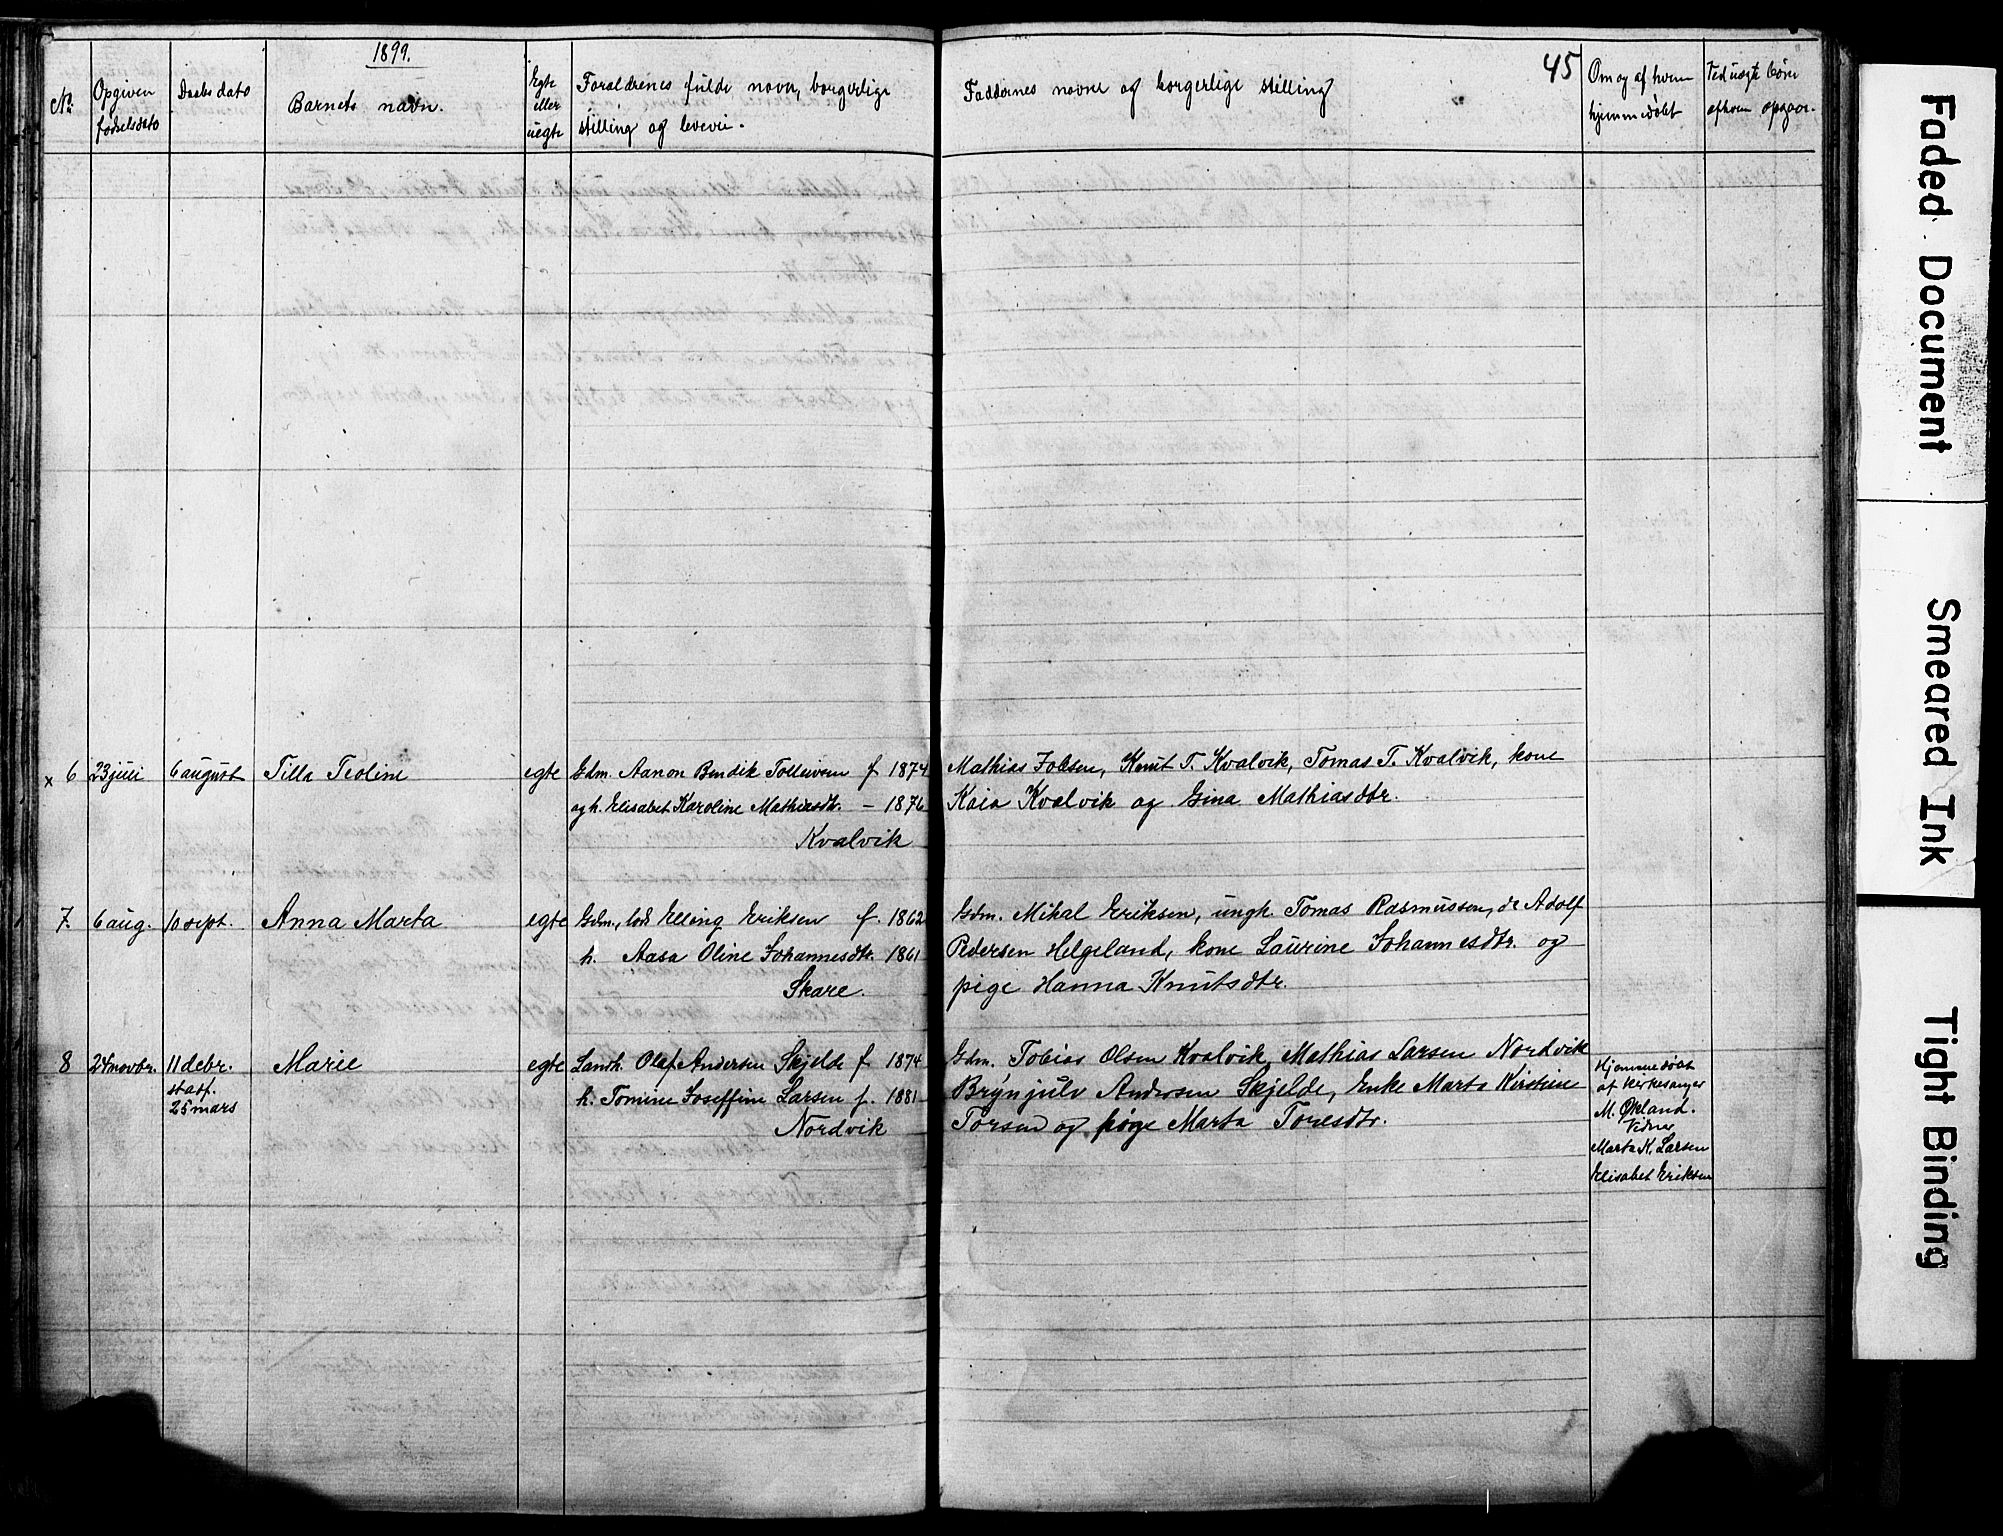 1899.
45
No.
Opgiven
fødselsdato
Daabsdato
Barnets navn.
Egte
eller
uegte
Foraldrenes fulde navn, borgerlige
stilling og levevei.
Faddernes navne og borgerlige stilling
Om og af hvem
hjemmedøbt
Ved uegte børn
afhvem opgav.
x 6 23 juli 6 august Tilla Teoline egte Gdm. Aanon Bendik Tolleivsen f 1874
og h. Elisabet Karoline Mathiasdtr. – 1876
Kvalvik
Mathias Jobsen, Knut T. Kvalvik, Tomas T. Kvalvik, kone
Kaia Kvalvik og Gina Mathiasdtr.
7. 6 aug. 10 sept. Anna Marta egte Gdm., lods Elling Eriksen f. 1862
h. Aasa Oline Johannesdtr. 1861
Skare.
Gdm. Mikal Eriksen, ungk. Tomas Rasmussen, do Adolf
Pedersen Helgeland, kone Laurine Johannesdtr. og
pige Hanna Knutsdtr.
8 24 novbr. 11 debr. Marie egte Landh. Olaf Andersen Skjelde f 1874
stadf.
25 mars
h. Tomine Joseffine Larsen f. 1881
Nordvik
Gdm. Tobias Olsen Kvalvik, Mathias Larsen Nordvik
Brynjulv Andersen Skjelde, Enke Marta Kirstine
Torsen og pige Marta Toresdtr.
Hjemmedøbt
af kirkesanger
M. Økland.
Vidner
Marta K. Larsen
Elisabet Eriksen
Faded Document
Smeared Ink
Tight Binding